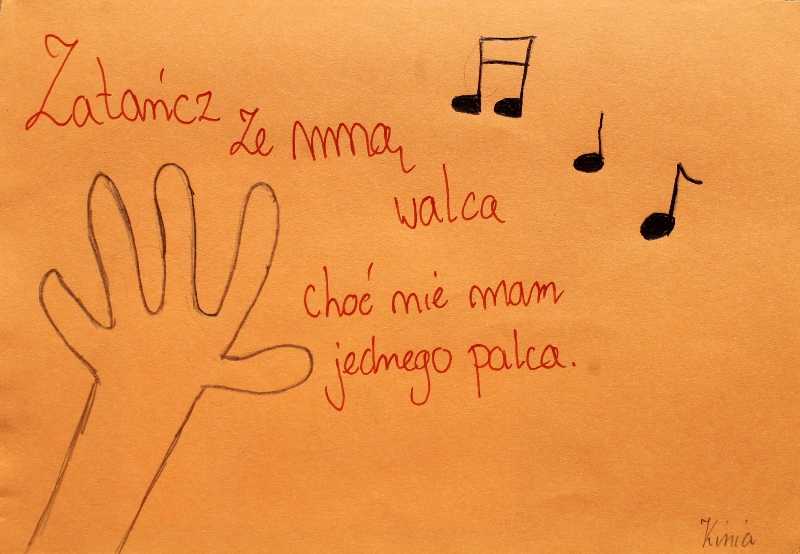 Zatańcz
ze mną
walca
choć nie mam
jednego palca.
Kinia